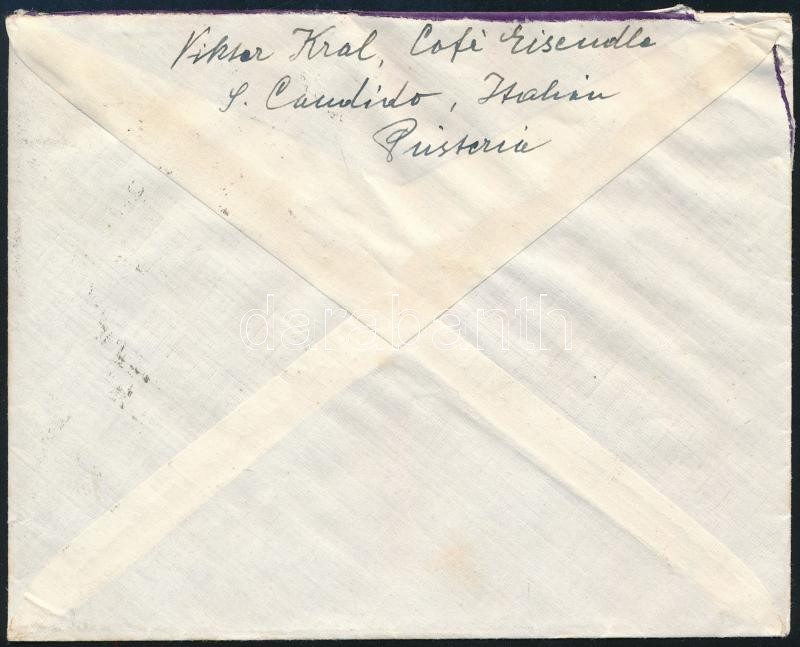 Viktor Kral, Café Eisendle
S. Candido, Italien
Pusteria
darabanth